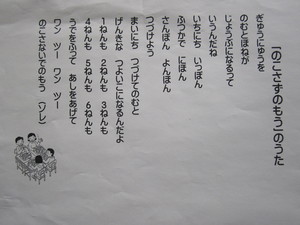 「のこさずのもう」のうた
ぎゅうにゅうを
のむとほねが
じょうぶになるって
いうんだね
いちにち いっぽん
ふつかで にほん
さんぼん よんほん
つづけよう
まいにち つづけてのむと
げんきな つよいこになるんだよ
1ねんも 2ねんも 3ねんも
4ねんも 5ねんも 6ねんも
うでをふって あしをあげて
ワン ツー ワン ツー
のこさないでのもう （ソレ）